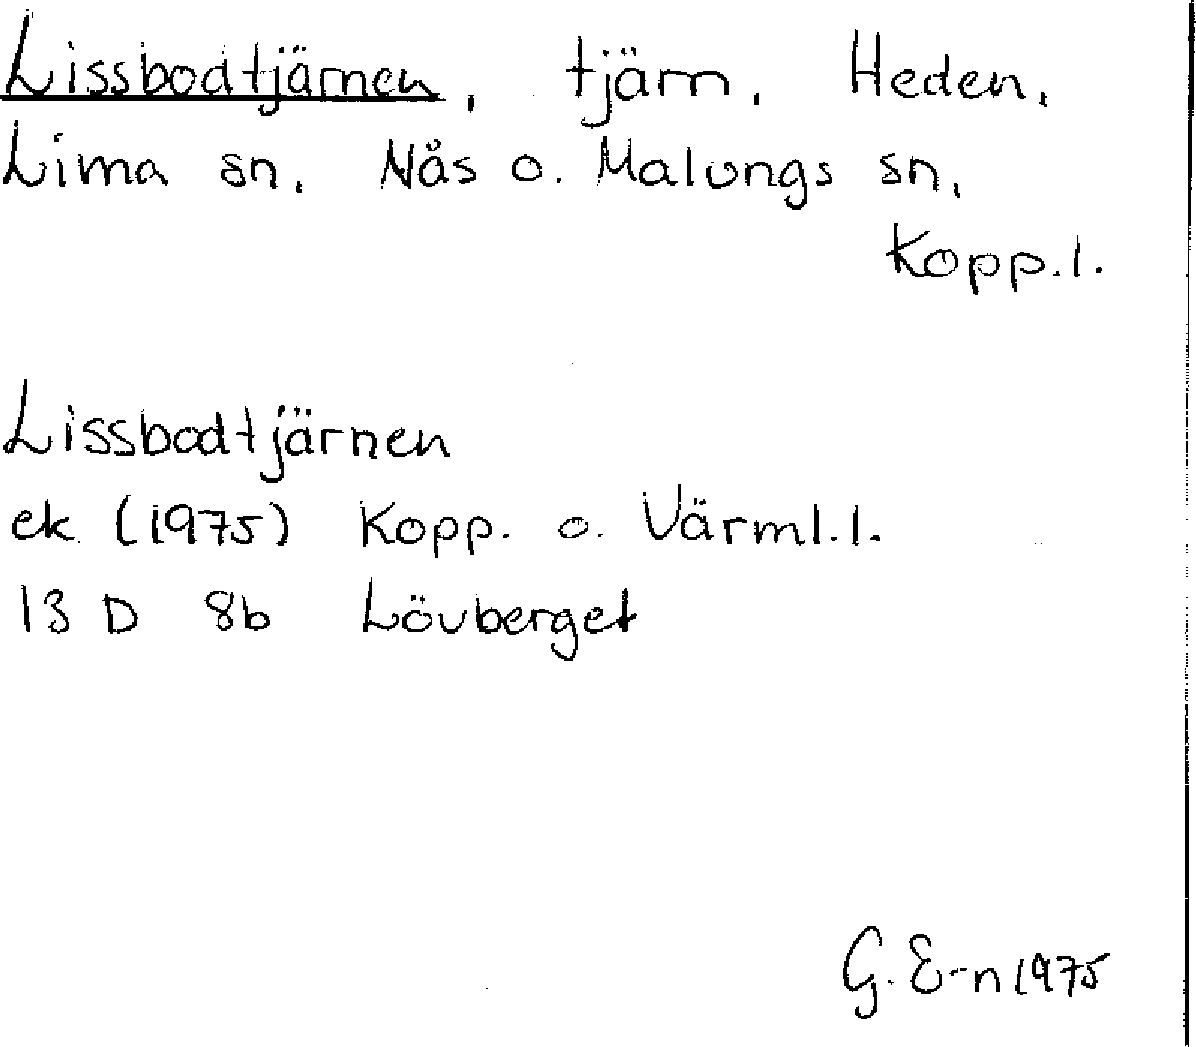 Lissbodtjärnen, tjärn, Heden,
Lima sn, Nås o. Malungs sn,
Kopp.l.
Lissbodtjärnen
ek (1975) Kopp. o. Värml.l.
13 D 8b Lövberget
G. E-n 1975